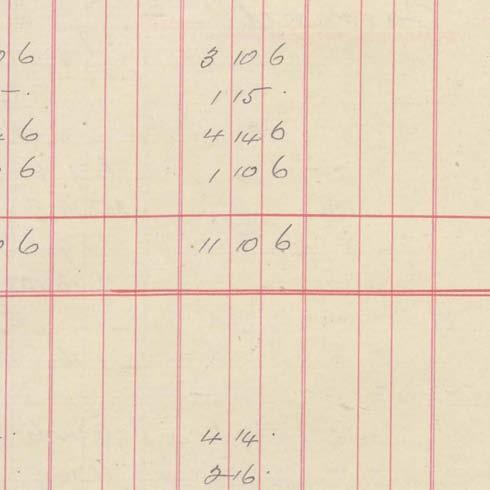 6 3 10 6
1 15 .
6 4 14 6
6 1 10 6
6 11 10 6
4 14 .
2 16 .